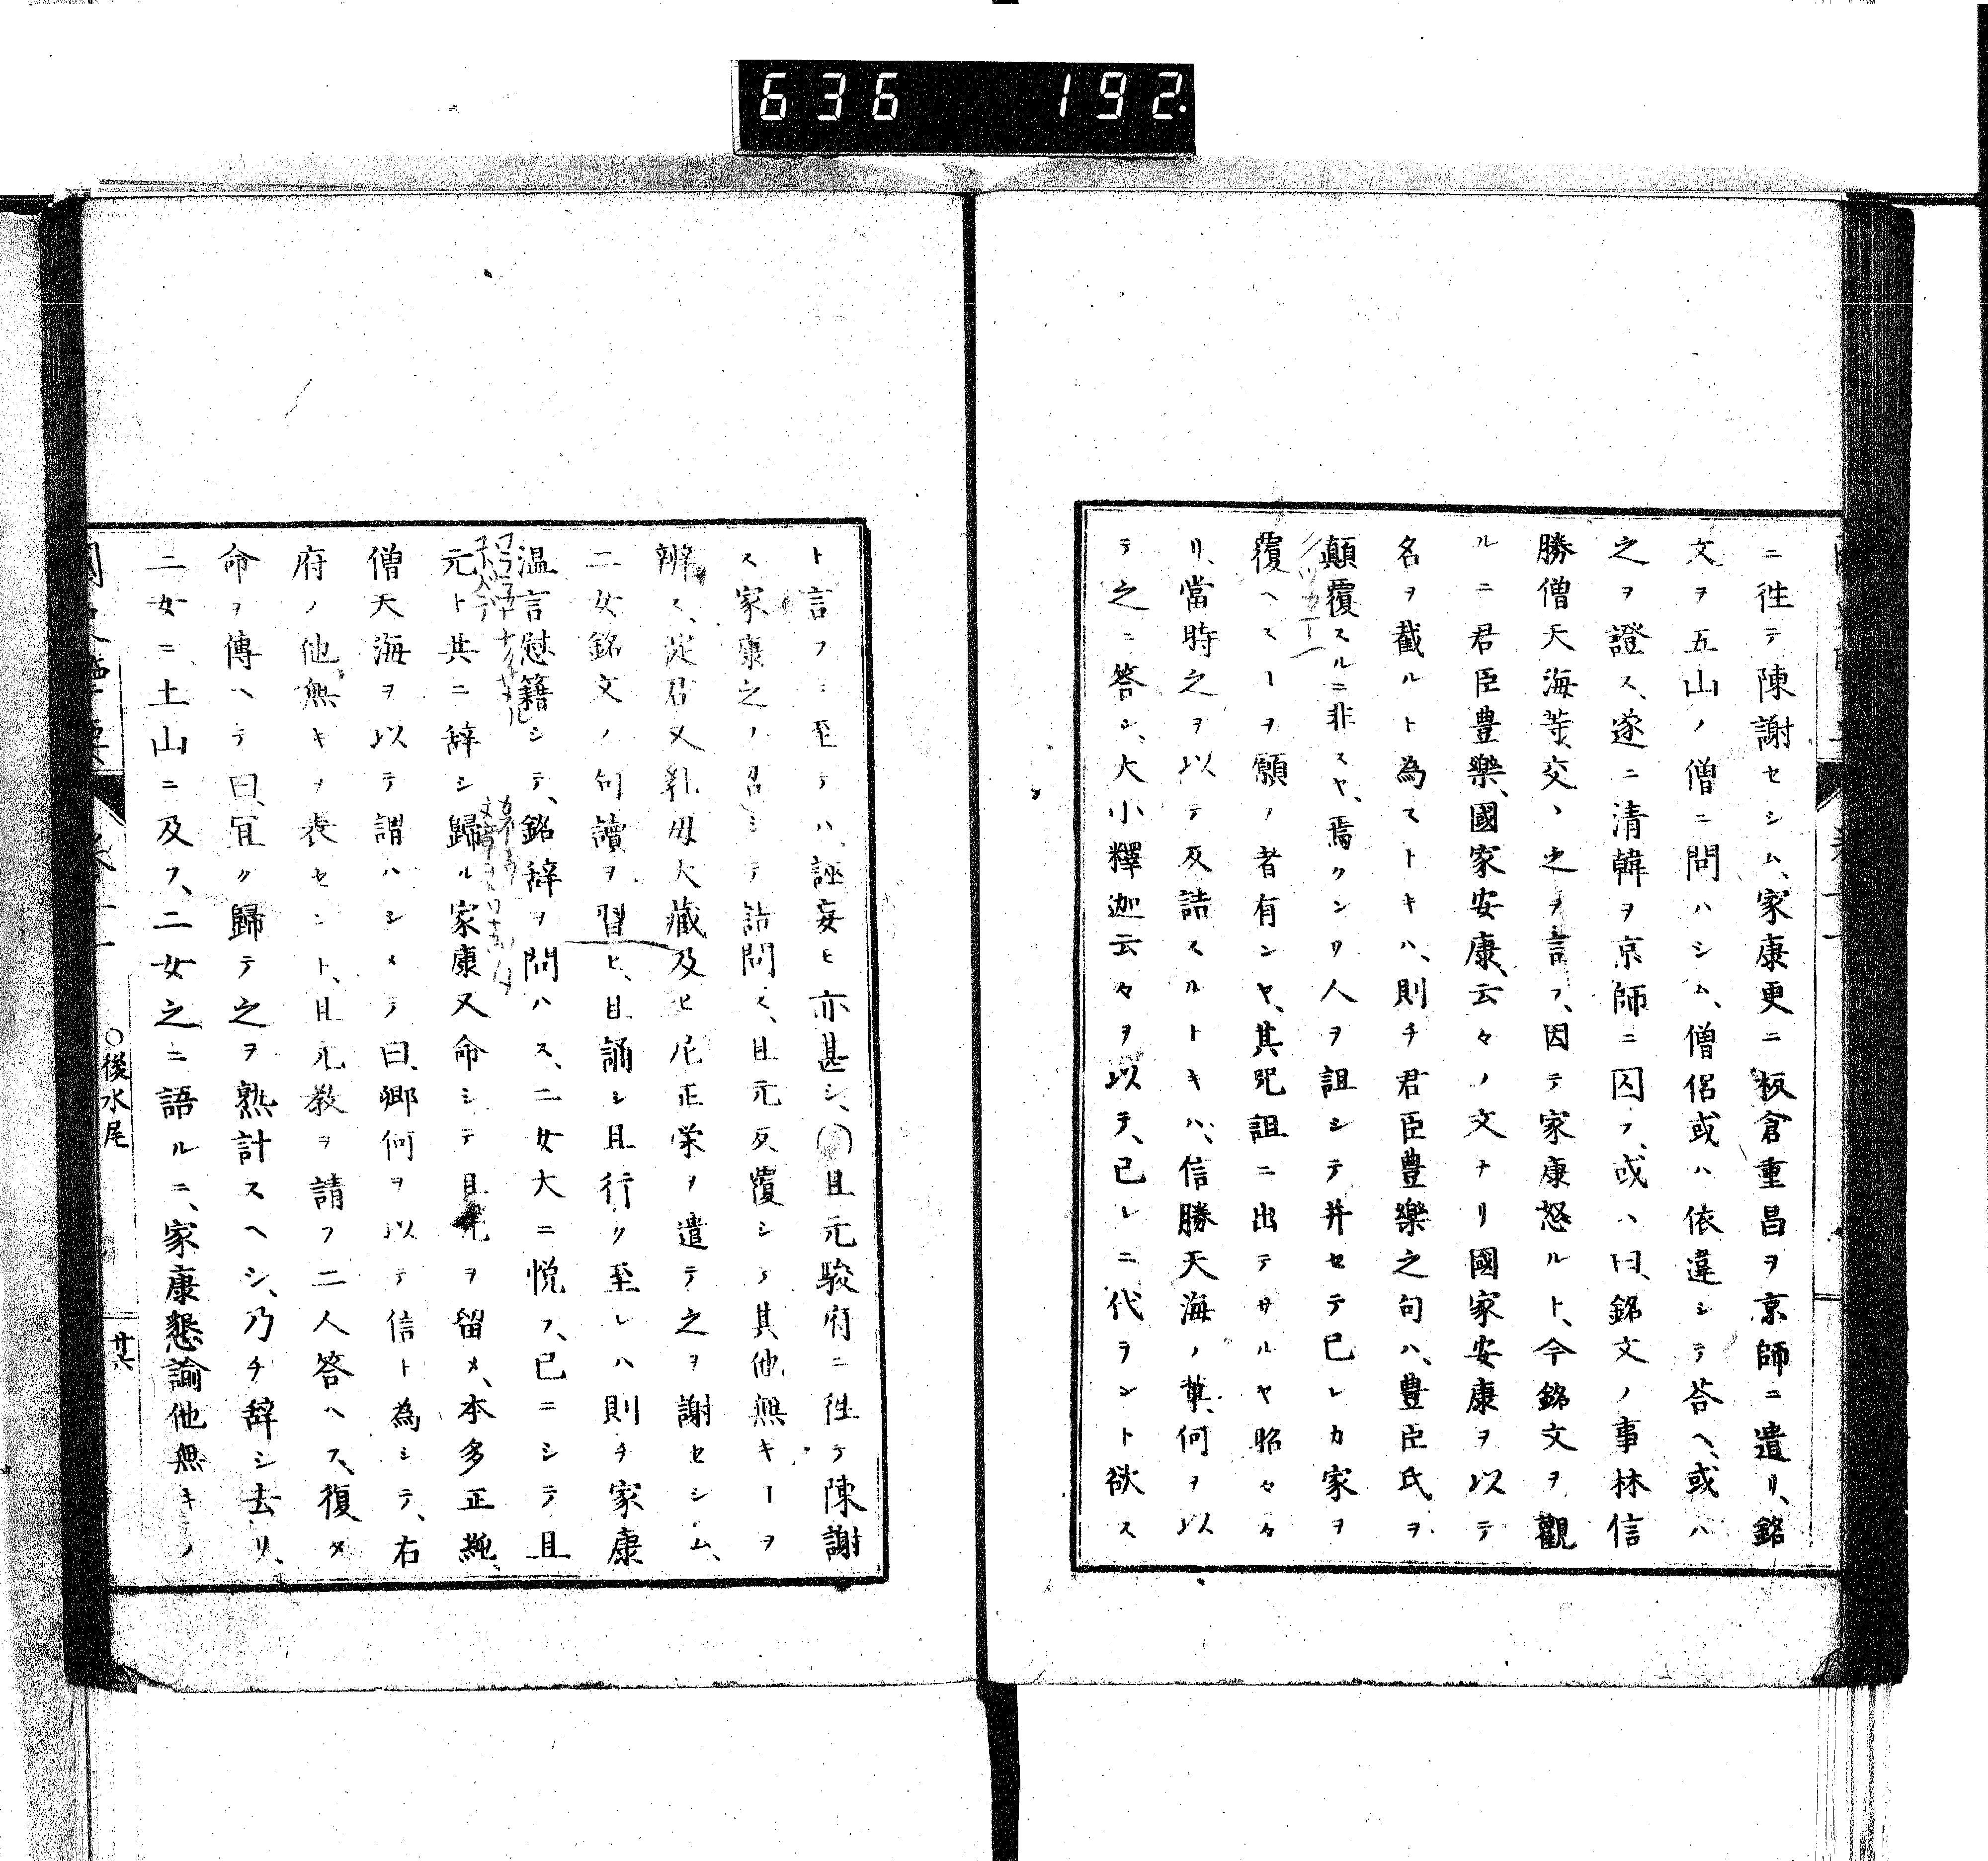 636 192
ニ徃テ陳謝セシム、家康更ニ板倉重昌ヲ京師ニ遣リ、銘
文ヲ五山ノ僧ニ問ハシム、僧侶或ハ依違シテ荅ヘ、或ハ
之ヲ證ス、遂ニ清韓ヲ京師ニ囚フ、或ハ曰、銘文ノ事林信
勝僧天海等、交、之ヲ言フ、因テ家康怒ルト、今銘文ヲ觀
ルニ君臣豊樂、國家安康、云々ノ文ナリ國家安康ヲ以テ
名ヲ截ルト為ストキハ、則チ君臣豊樂之句ハ、豊臣氏ヲ
顛覆スルニ非スヤ、焉クンソ人ヲ詛シテ并セテ已レカ家ヲ
覆ヘスーヲ願フ者有ンヤ、其咒詛ニ出テサルヤ昭々タ
リ、當時之ヲ以テ反詰スルトキハ、信勝天海ノ輩、何ヲ以
テ之ニ答シ、大小釋迦云々ヲ以テ、已レニ代ラント欲ス
ト言フニ至テハ、誣妄モ亦甚シ、且元駿府ニ徃テ陳謝
ス家康之ノ召シテ詰問ス、且元反覆シテ其他無キーヲ
辨ス、淀君又乳母大藏及ヒ尼正栄ヲ遣テ之ヲ謝セシム、
二女銘文ノ句讀ヲ習ヒ、且誦シ且行ク至レハ則チ家康
温言慰籍シテ、銘辞ヲ問ハス、二女大ニ悦フ、已ニシテ且
元ト共ニ辞シ歸ル家康又命シテ且元ヲ留メ、本多正純、
僧天海ヲ以テ謂ハシメテ曰、卿何ヲ以テ信ト為シテ、右
府ノ他無キヲ表セント、且元教ヲ請フ二人答ヘス、復タ
命ヲ傳ヘテ曰、宜ク歸テ之ヲ熟計スヘシ、乃チ辞シ去リ、
二女ニ土山ニ及フ、二女之ニ語ルニ、家康懇諭他無キノ
○後水尾
廿六